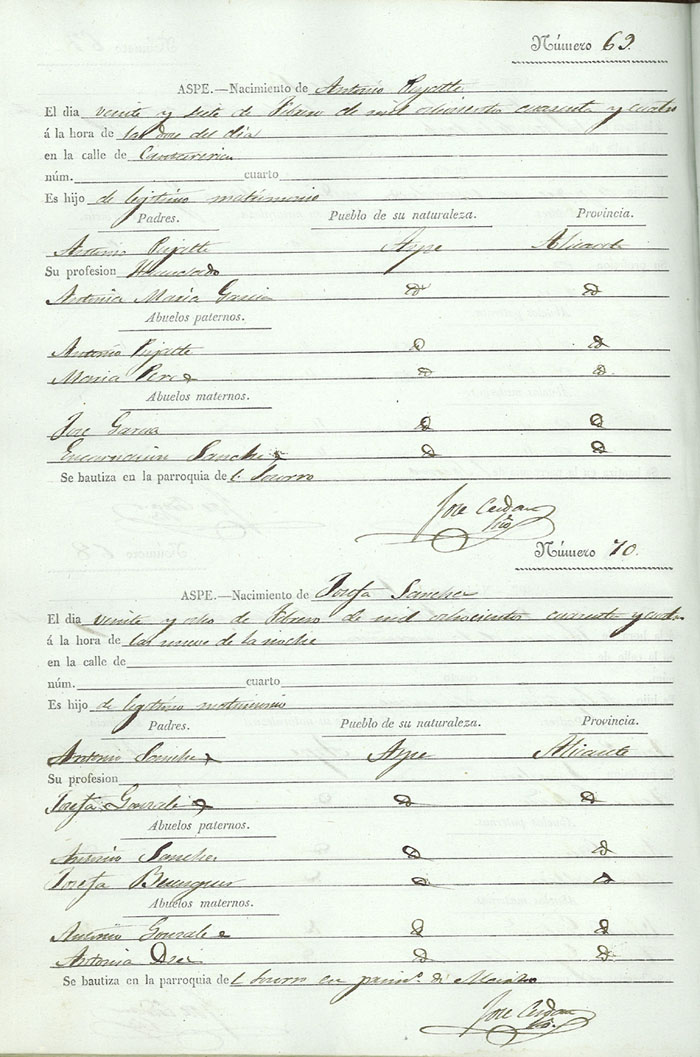 Número 69.
ASPE.—Nacimiento de Antonio
El dia veinte y siete de Febrero de mil ochocientos cuarenta y cuatro
á la hora de las doce del dia
en la calle de
núm. cuarto
Es hijo de legitimo matrimonio
Padres. Pueblo de su naturaleza. Provincia.
Antonio Aspe Alicante
Su profesion Hacendado
Antonia Maria Garcia D D
Abuelos paternos.
Antonio D D
Maria Perez D D
Abuelos maternos.
Jose Garcia D D
Encarnacion Sanchez D D
Se bautiza en la parroquia de l Socorro
Jose Cerdan
Número 70.
ASPE.—Nacimiento de Josefa Sanchez
El dia veinte y ocho de Febrero de mil ochocientos cuarenta y cuatro
á la hora de las nueve de la noche
en la calle de
núm. cuarto
Es hijo de legitimo matrimonio
Padres. Pueblo de su naturaleza. Provincia.
Antonio Sanchez Aspe Alicante
Su profesion
Josefa Gonzalez D D
Abuelos paternos.
Antonio Sanchez D D
Josefa Berenguer D D
Abuelos maternos.
Antonio Gonzalez D D
Antonia D D
Se bautiza en la parroquia de l Socorro en
Jose Cerdan